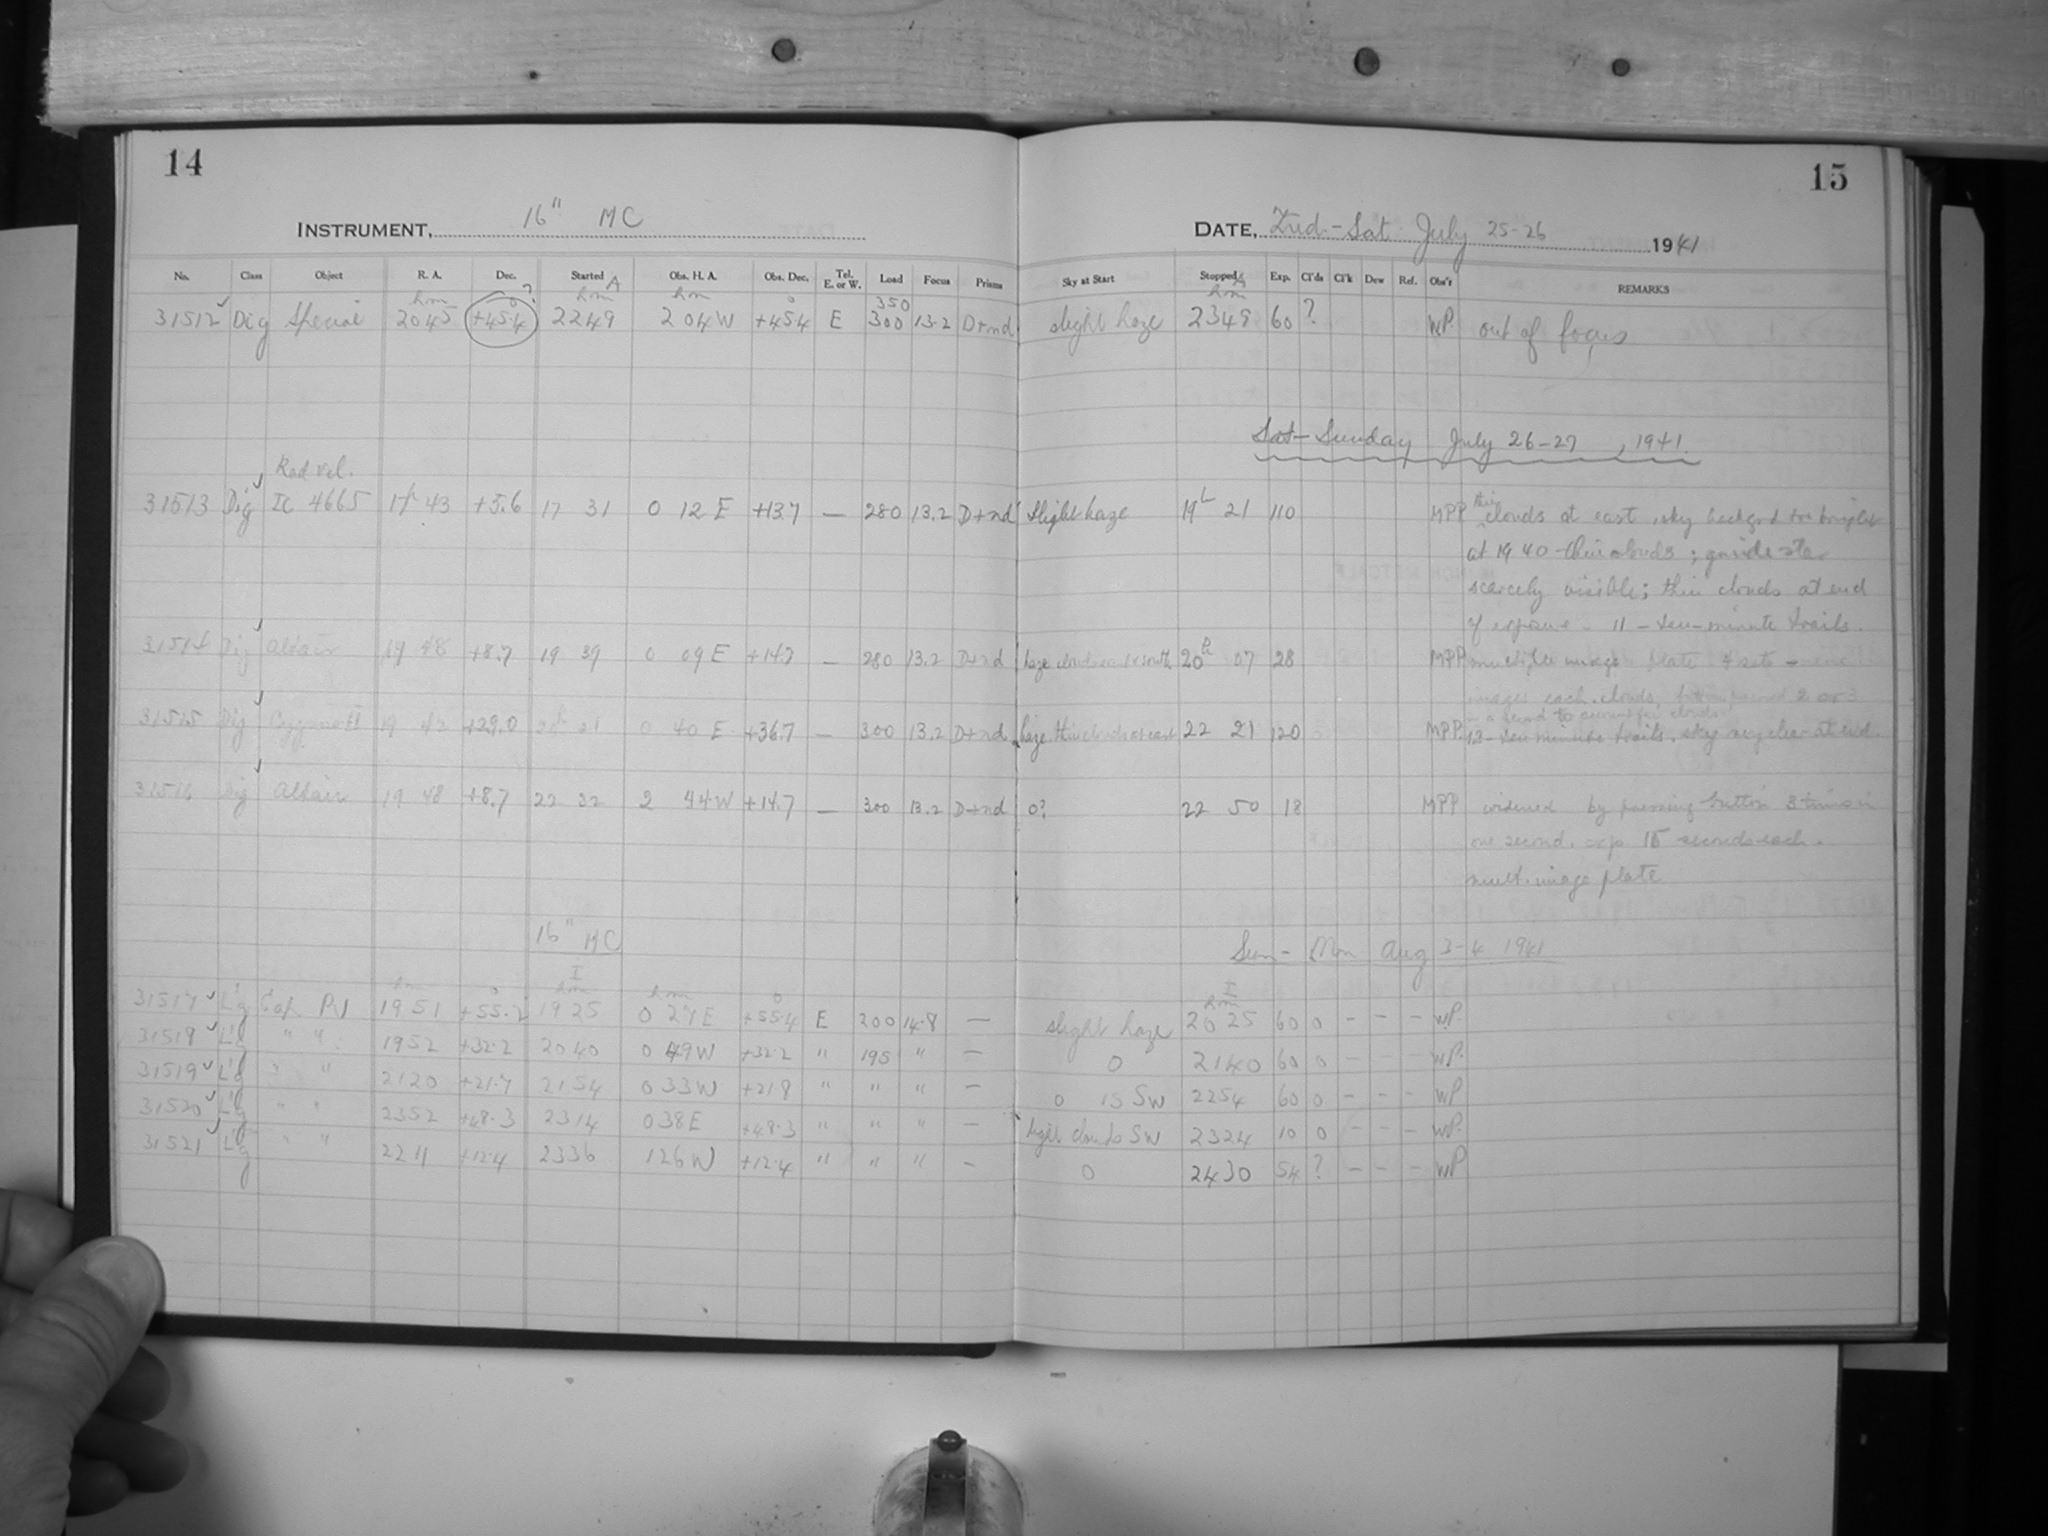 14
15
INSTRUMENT, 16" MC
DATE, Frid.-Sat July 25-26 1941
No. Class Object R. A. Dec. Started Obs. H. A. Obs. Dec. Tel. E. or W. Load Focus Prisms Sky at Start Stopped Exp. Cl'ds Cl'k Dew Ref. Obs'r REMARKS
A A
h m ° ? h m h m ° 350 h m
31512 Dig Special 2045 +45.4 2249 2 04W +45.4 E 300 13.2 D+nd slight haze 2349 60 ? WP. out of focus
Sat-Sunday July 26-27, 1941.
Rad vel.
31513 Dig IC 4665 17h 43 +5.6 17 31 0 12 E +13.7 — 280 13.2 D+nd slight haze 19 21 110 MPP thin clouds at east, sky backgrd too bright
at 19 40 - thin clouds; guide star
scarcely visible; thin clouds at end
of exposure - 11-ten-minute trails.
31514 Dig Altair 19 48 +8.7 19 39 0 09 E +14.7 — 280 13.2 D+nd haze clouds east & south 20h 07 28 MPP multiple image plate 4 sets - nine
images each. clouds, button pressed 2 or 3
- a second to account for clouds
31515 Dig 19 42 +29.0 21 0 40 E +36.7 — 300 13.2 D+nd haze. thin clouds at east 22 21 120 MPP. 12-ten minute trails. sky very clear at end.
31516 Dig Altair 19 48 +8.7 22 32 2 44W +14.7 — 300 13.2 D+nd 0? 22 50 18 MPP widened by pressing button 3 times in
one second. exp 15 seconds each.
mult. image plate
16" MC
Sun - Mon Aug 3-4 1941
I I
h m ° h m h m ° h m
31517 L'g Cap PV 1951 +55.2 1925 0 27E +55.4 E 200 14.8 — slight haze 2025 60 0 - - - WP.
31518 L'g " " 1952 +32.2 2040 0 49W +32.2 " 195 " — 0 2140 60 0 - - - WP.
31519 L'g " " 2120 +21.7 2154 0 33W +21.8 " " " — 0 15 SW 2254 60 0 - - - WP
31520 L'g " " 2352 +48.3 2314 0 38E +48.3 " " " — light clouds SW 2324 10 0 - - - WP.
31521 L'g " " 2211 +12.4 2336 1 26W +12.4 " " " — 0 2430 54 ? - - - WP